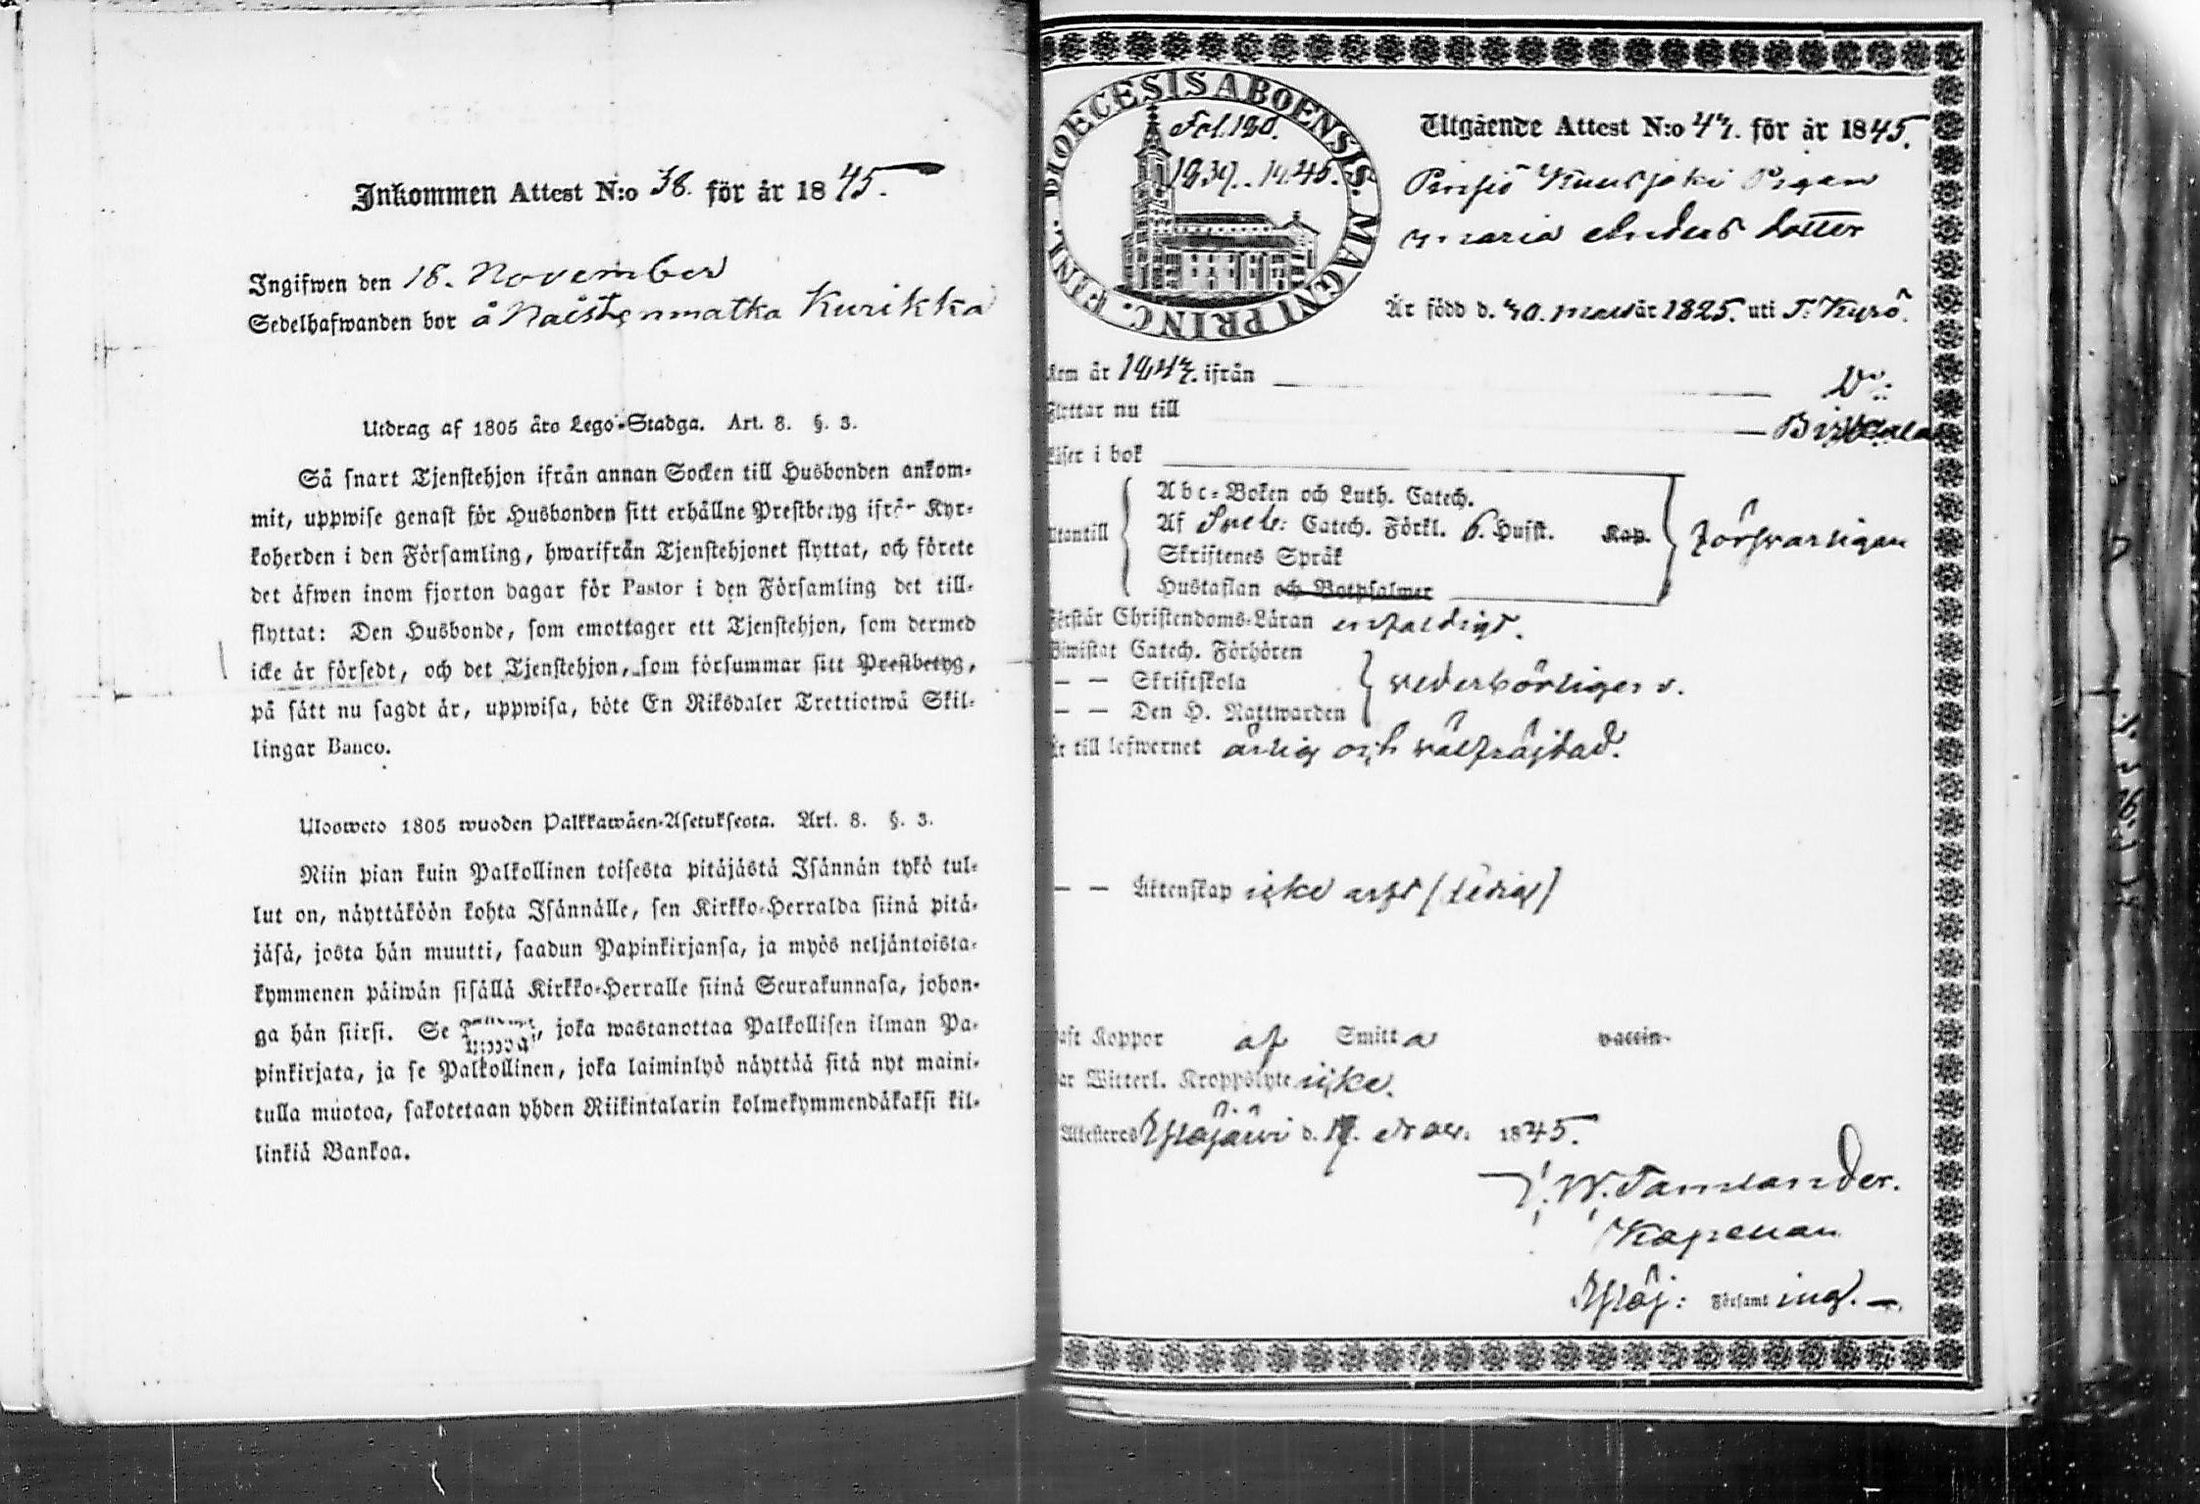 Inkommen Attest N:o 38. för år 1845.
Ingifwen den 18. November
Sedelhafwanden bor å Naistenmatka Kurikka
Utdrag af 1805 års Lego-Stadga. Art. 8. §. 3.
Så snart Tjenstehjon ifrån annan Socken till Husbonden ankom-
mit, uppwise genast för Husbonden sitt erhållne Prestbetyg ifrån Kyr-
koherden i den Församling, hwarifrån Tjenstehjonet flyttat, och förete
det äfwen inom fjorton dagar för Pastor i den Församling det till-
flyttat: Den Husbonde, som emottager ett Tjenstehjon, som dermed
icke är försedt, och det Tjenstehjon, som försummar sitt Prestbetyg,
på sätt nu sagdt är, uppwisa, böte En Riksdaler Trettiotwå Skil-
lingar Banco.
Ulosweto 1805 wuoden Palkkawäen-Asetuksesta. Art. 8. §. 3.
Niin pian kuin Palkollinen toisesta pitäjästä Isännän tykö tul-
lut on, näyttäköön kohta Isännälle, sen Kirkko-Herralda siinä pitä-
jäsä, josta hän muutti, saadun Papinkirjansa, ja myös neljäntoista-
kymmenen päiwän sisällä Kirkko-Herralle siinä Seurakunnasa, johon-
ga hän siirsi. Se , joka wastanottaa Palkollisen ilman Pa-
pinkirjata, ja se Palkollinen, joka laiminlyö näyttää sitä nyt maini-
tulla muotoa, sakotetaan yhden Riikintalarin kolmekymmendäkaksi kil-
linkiä Bankoa.
DIOECESIS ABOENSIS. MAGNI PRINC. FINL.
Fol. 180.
1839. 1845.
Utgående Attest N:o 47. för år 1845.
Pinsiö Kuusjoki Pigan
Maria Anders dotter
Är född d. 30. Mars år 1825. uti T: Kyrö.
Kom år 1842. ifrån Do:
Flyttar nu till Birkala
Läser i bok
Utantill
Abc-Boken och Luth. Catech.
Af Sveb: Catech. Förkl. 6. Hufst. Kap.
Skriftenes Språk
Hustaflan och Botpsalmer
försvarligen
Förstår Christendoms-Läran enfaldigt.
Biwistat Catech. Förhören
— — Skriftskola
— — Den H. Nattwarden
vederbörligen
Är till lefwernet ärlig och välfräjdad.
— — Äktenskap icke        (ledig)
haft Koppor af Smitta vaccin.
har Witterl. Kroppslyte icke.
Attesteres Ylöjärvi d. 17. Nov. 1845.
W. Tamlander.
Kapellan
Ylöj: Församling.